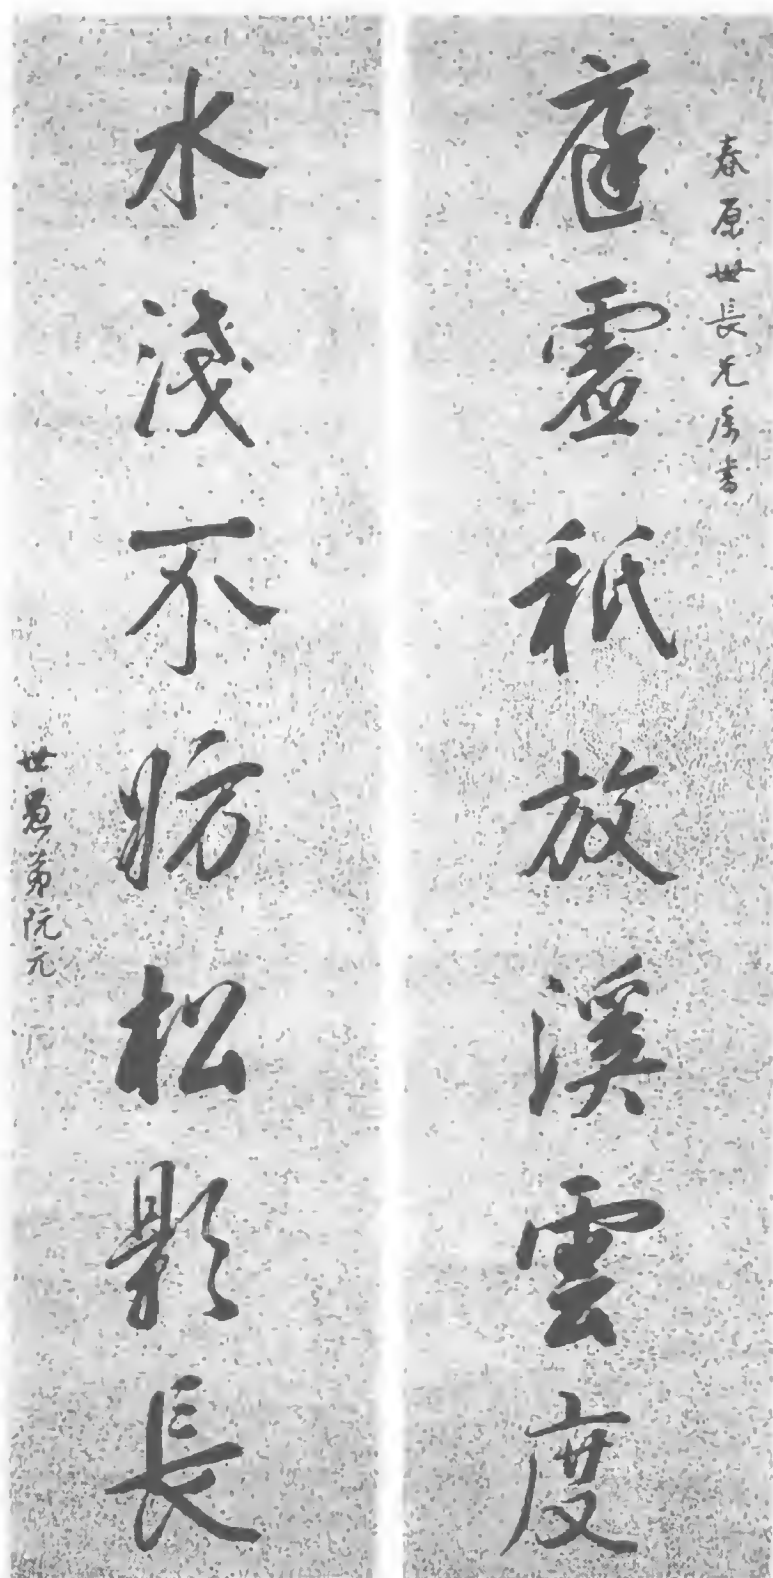 春原世長兄屬書
庭虛秪放溪雲度
水淺不妨松影長
世愚弟阮元